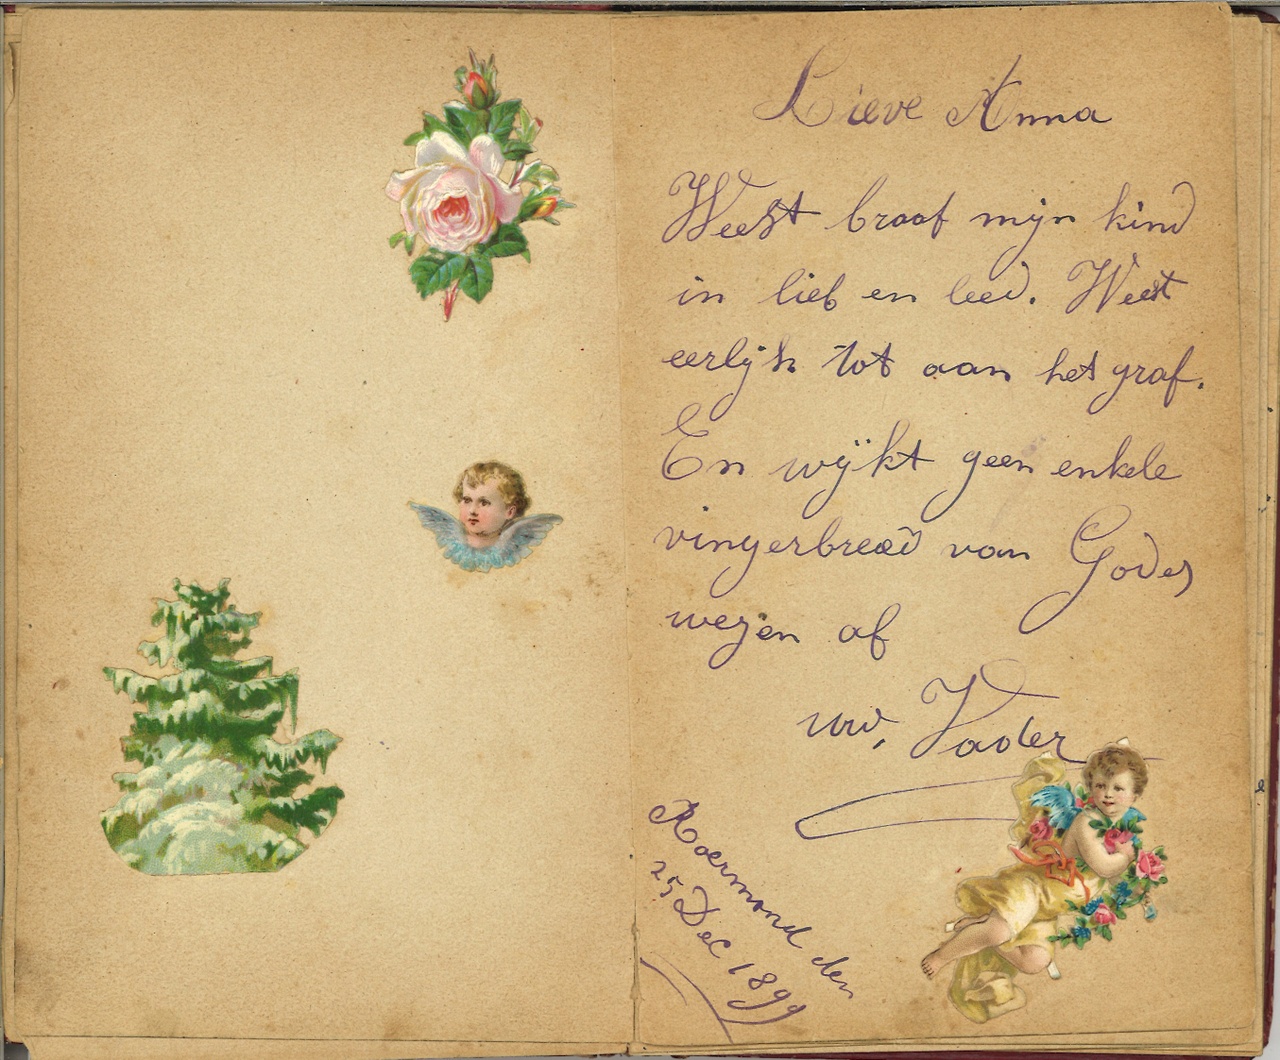 Lieve Anna
Weest braaf mijn kind
in lief en leed. Weest
eerlijk tot aan het graf.
En wijkt geen enkele
vingerbreed van Godes
wegen af
uw, Vader
Roermond den
25 Dec 1899